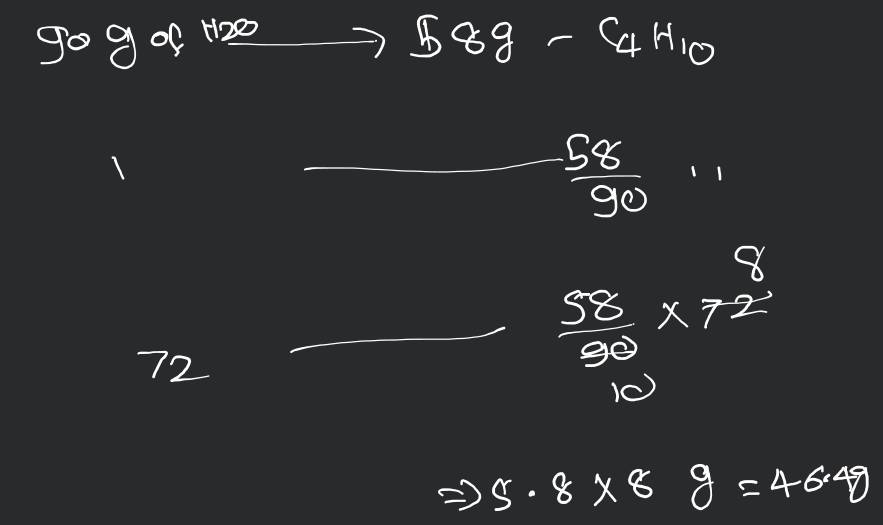 90 g of H2O → 58g - C4H10
1 — 58/90 ''
72 — 58/90 × 72 8
10
⇒ 5.8 × 8 g = 46.4g